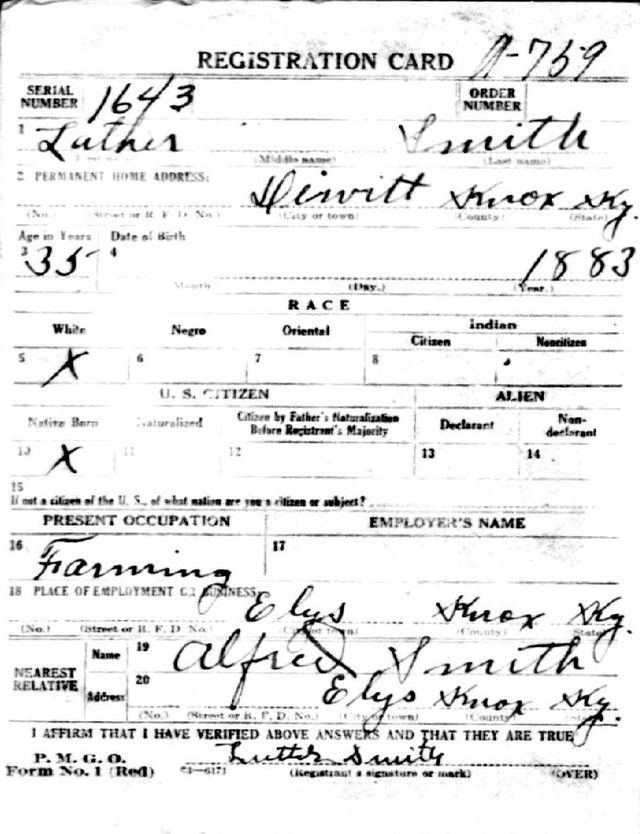 REGISTRATION CARD A-759
SERIAL NUMBER 1643 ORDER NUMBER
1 Luther Smith
(Middle name) (Last name)
2 PERMANENT HOME ADDRESS:
Dewitt Knox Ky.
(No.) (Street or R. F. D. No.) (City or town) (County) (State)
Age in Years Date of Birth
3 35 4 1883
Month (Day.) (Year.)
RACE
White Negro Oriental Indian
Citizen Noncitizen
5 X 6 7 8
U. S. CITIZEN ALIEN
Native Born Naturalized Citizen by Father's Naturalization Before Registrant's Majority Declarant Non-declarant
10 X 11 12 13 14
15
If not a citizen of the U. S., of what nation are you a citizen or subject?
PRESENT OCCUPATION EMPLOYER'S NAME
16 Farming 17
18 PLACE OF EMPLOYMENT OR BUSINESS:
Elys Knox Ky.
(No.) (Street or R. F. D. No.) (City or town) (County) State
NEAREST RELATIVE Name 19 Alfred Smith
Address 20 Elys Knox Ky.
(No.) (Street or R. F. D. No.) (City or town) (County)
I AFFIRM THAT I HAVE VERIFIED ABOVE ANSWERS AND THAT THEY ARE TRUE
P. M. G. O.
Form No. 1 (Red) Luther Smith
(Registrant's signature or mark) (OVER)